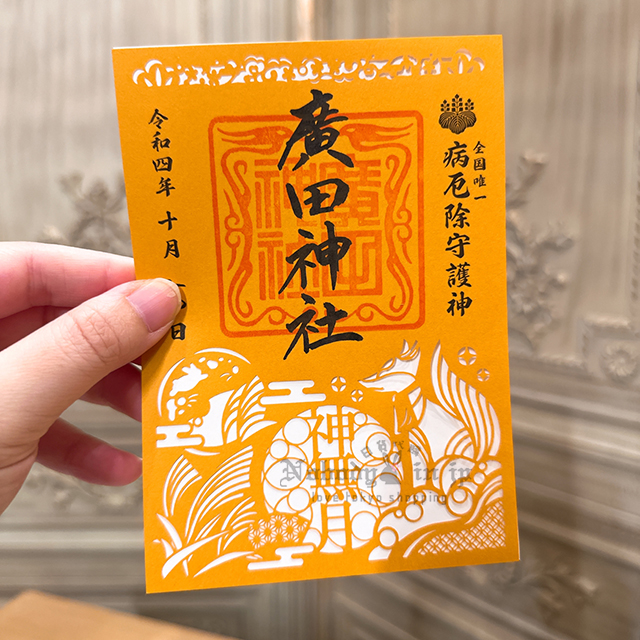 全国唯一
病厄除守護神
廣田神社
令和四年 十月 日
廣田
神社
神
月
Nobody in jp
love tokyo shopping